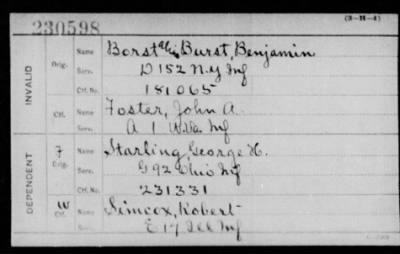 (3-H-4)
230598
INVALID
Orig. Name Borst alias Burst, Benjamin
Serv. D 152 N.Y. Inf
Ctf. No. 181065
Ctf. Name Foster, John A.
Serv. A 1 Inf
DEPENDENT
F
Orig. Name Starling, George H.
Serv. G 92 Ohio Inf
Ctf. No. 231331
W
Ctf. Name Simcox, Robert
Serv. E 17 Ill Inf